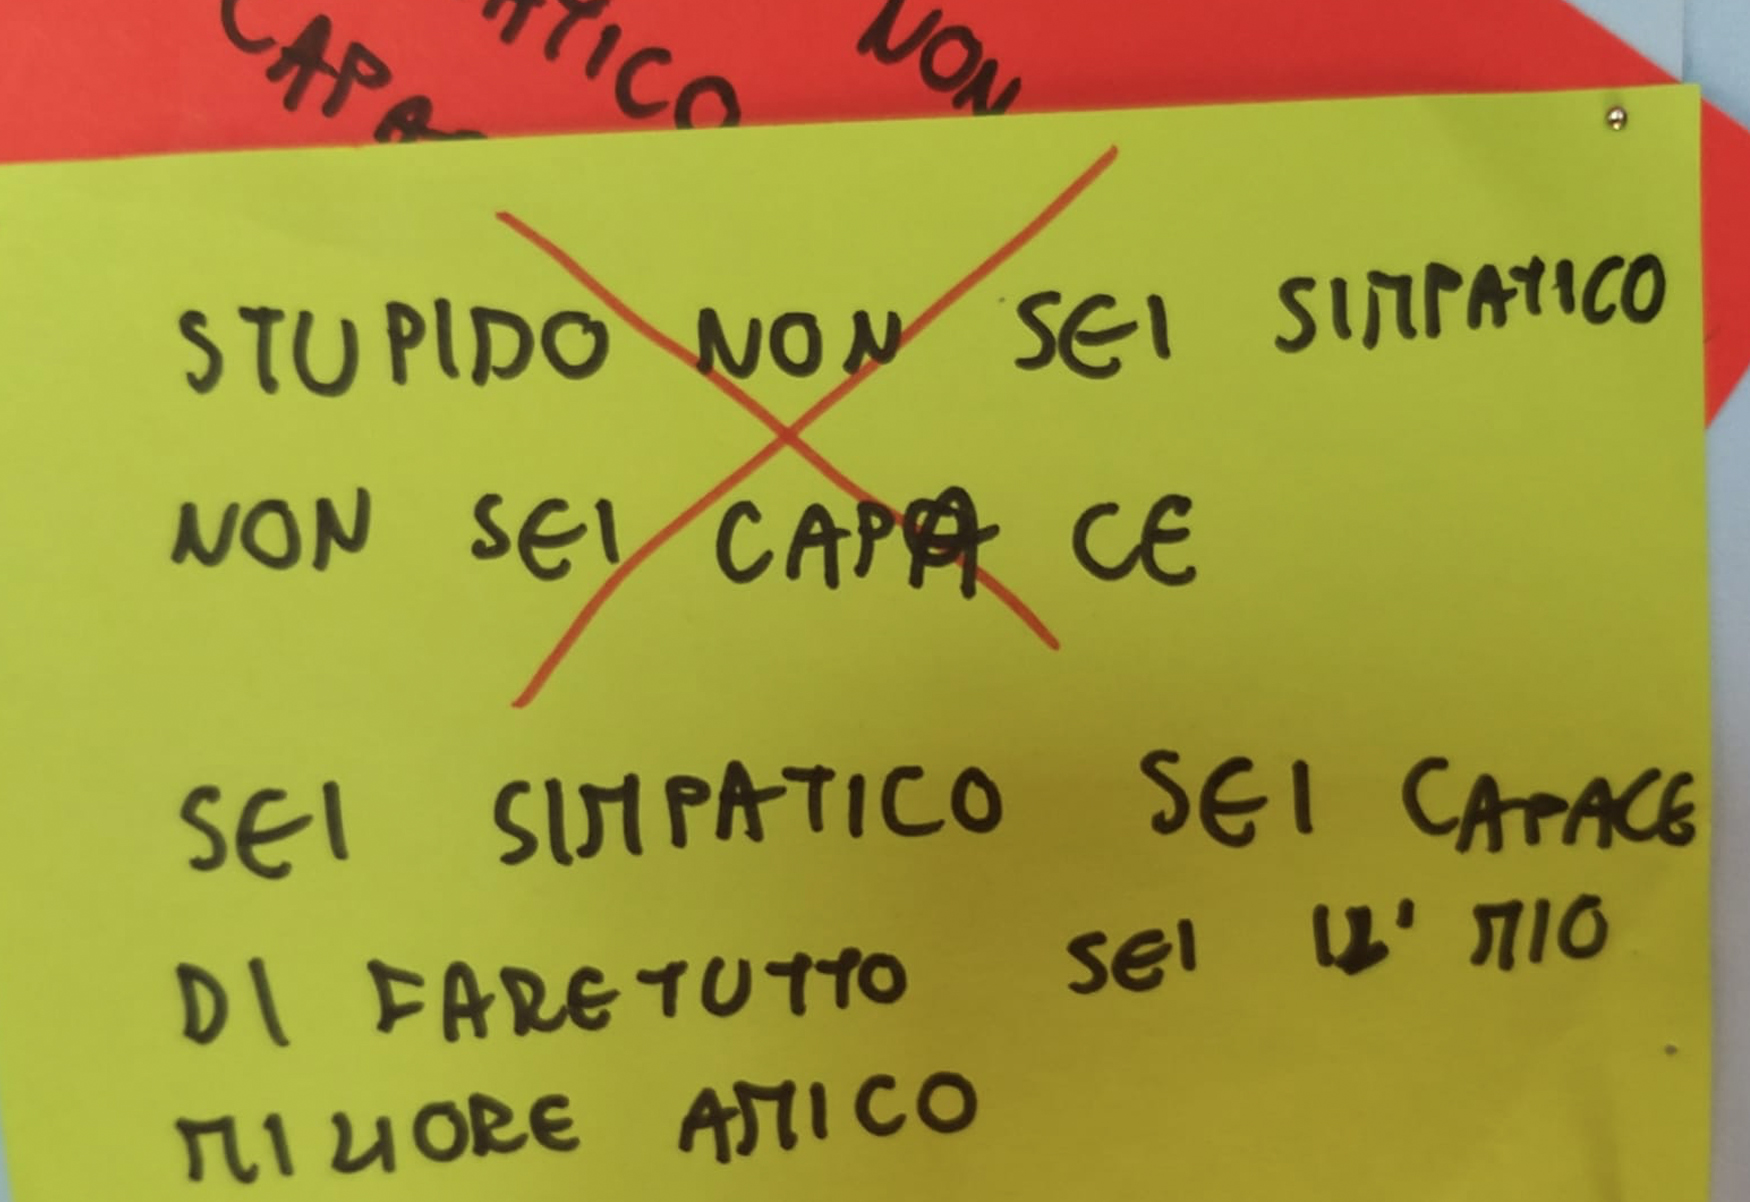 ATICO
NON
CAPA
STUPIDO NON SEI SIMPATICO
NON SEI CAPA CE
SEI SIMPATICO SEI CAPACE
DI FARE TUTTO SEI IL' MIO
MILIORE AMICO